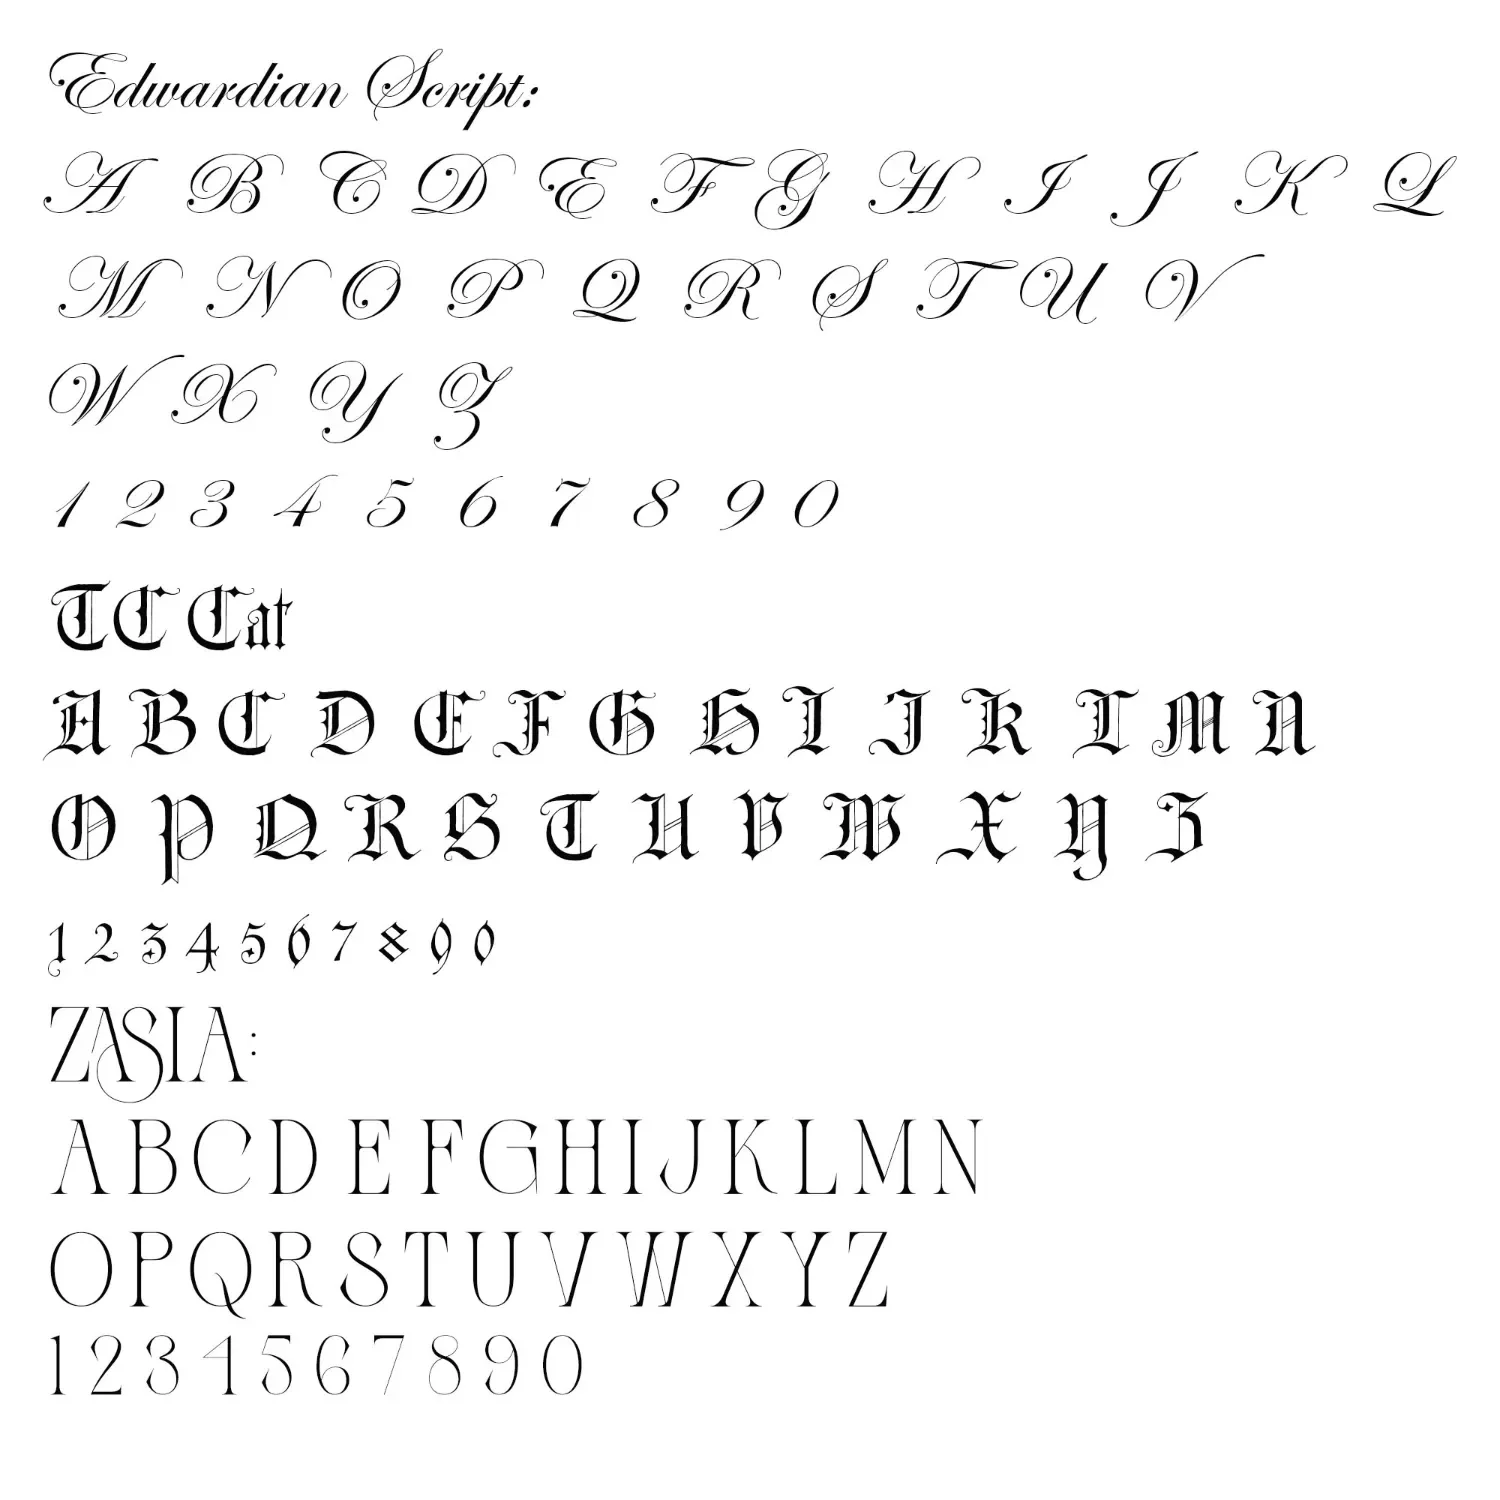 Edwardian Script:
A B C D E F G H I J K L
M N O P Q R S T U V
W X Y Z
1 2 3 4 5 6 7 8 9 0
TC Cat
A B C D E F G H I J K L M N
O P Q R S T U V W X Y Z
1 2 3 4 5 6 7 8 9 0
ZASIA:
A B C D E F G H I J K L M N
O P Q R S T U V W X Y Z
1 2 3 4 5 6 7 8 9 0